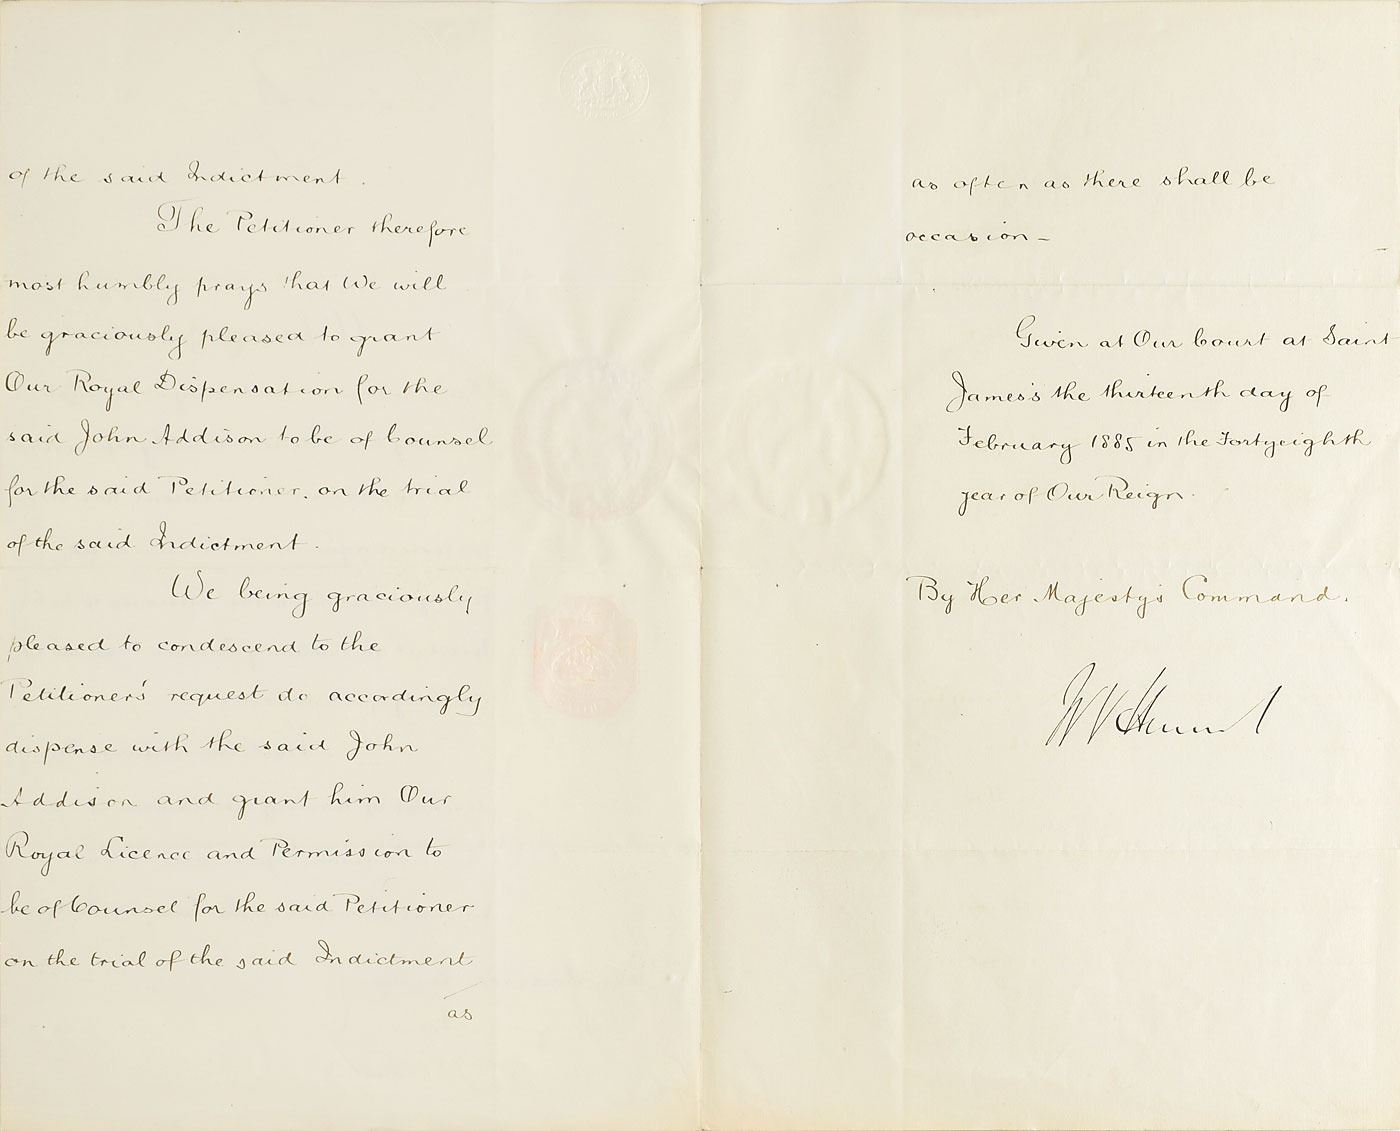 of the said Indictment.
The Petitioner therefore
most humbly prays that We will
be graciously pleased to grant
Our Royal Dispensation for the
said John Addison to be of Counsel
for the said Petitioner, on the trial
of the said Indictment.
We being graciously
pleased to condescend to the
Petitioner's request do accordingly
dispense with the said John
Addison and grant him Our
Royal Licence and Permission to
be of Counsel for the said Petitioner
on the trial of the said Indictment
as
as often as there shall be
occasion –
Given at Our Court at Saint
James's the thirteenth day of
February 1885 in the Fortyeighth
year of Our Reign.
By Her Majesty's Command.